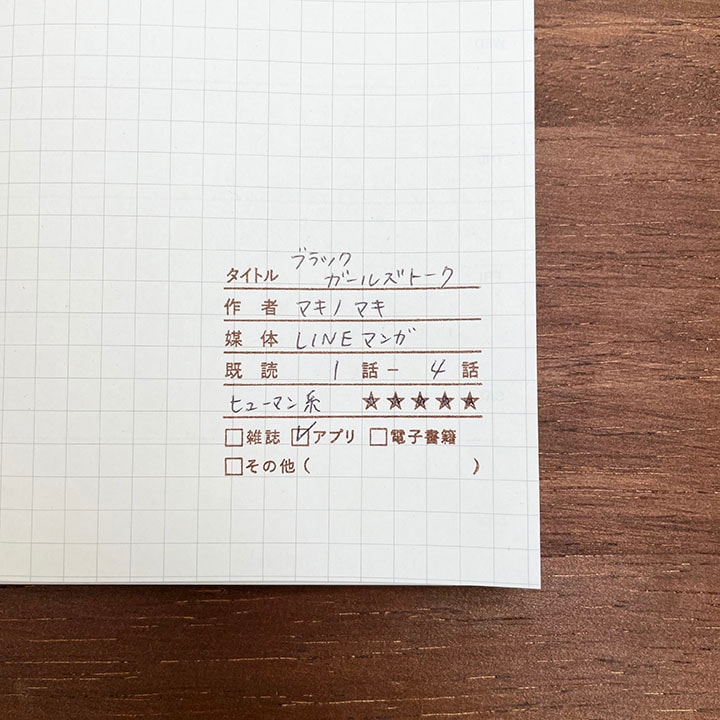 ブラック
タイトル ガールズトーク
作者 マキノマキ
媒体 LINEマンガ
既読 1話－4話
ヒューマン系 ★★★★★
□雑誌 ☑アプリ □電子書籍
□その他（ ）